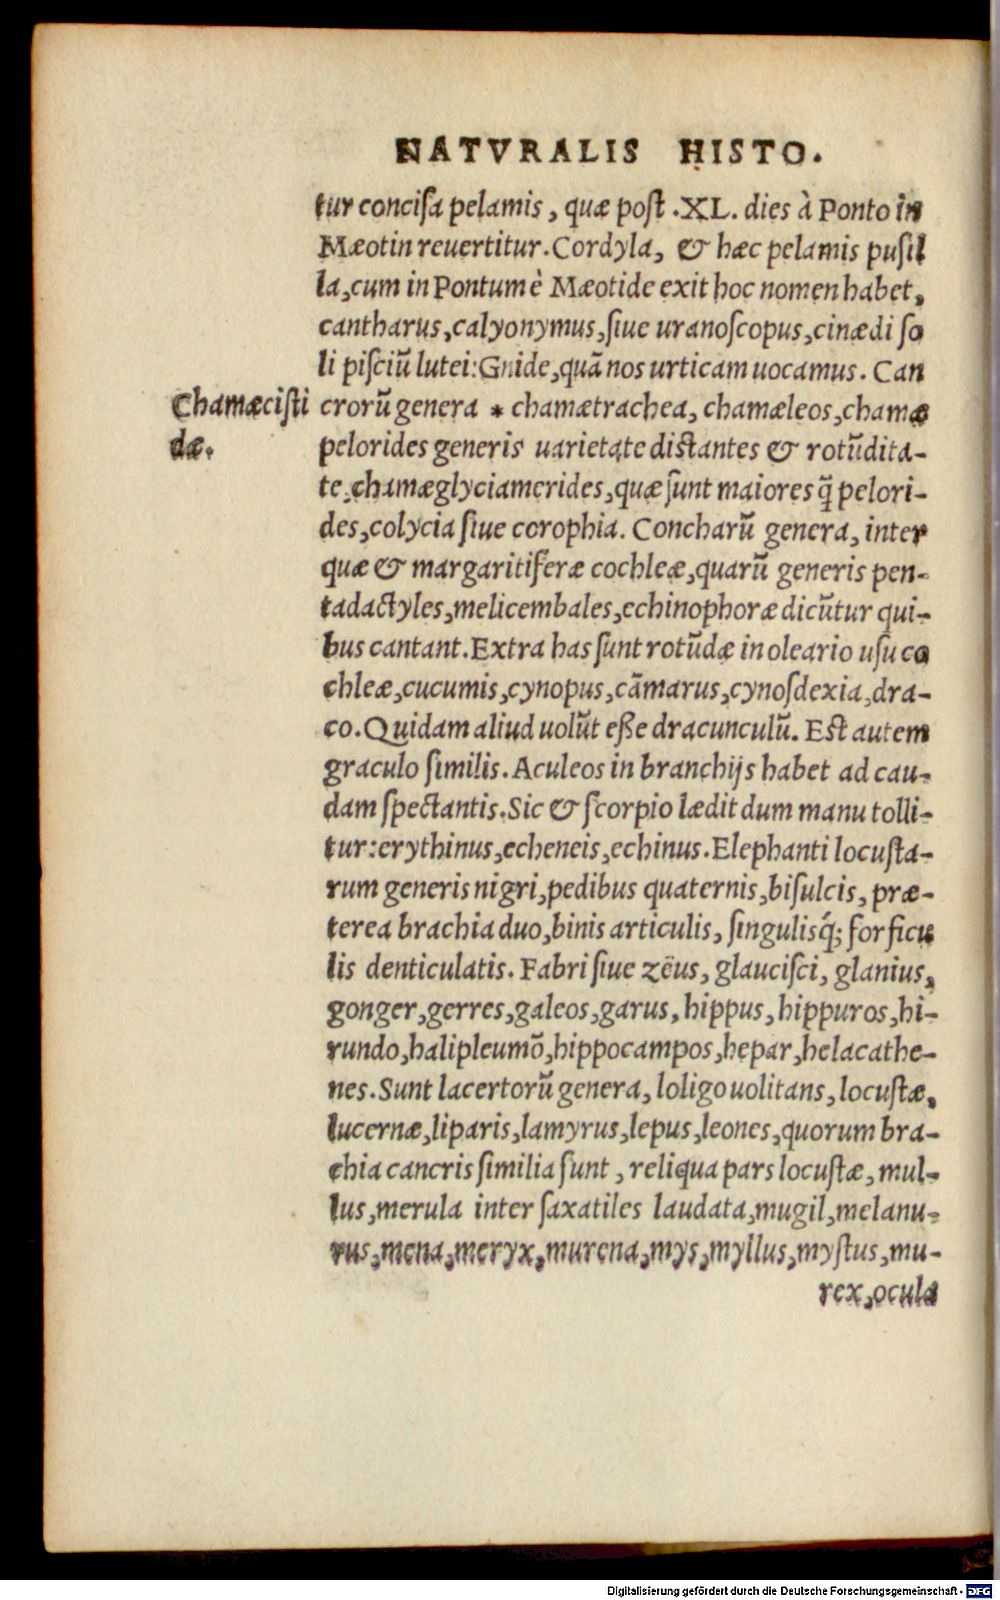 NATVRALIS HISTO.
tur concisa pelamis, quæ post .XL. dies à Ponto in
Mæotin reuertitur. Cordyla, & hæc pelamis pusil
la, cum in Pontum è Mæotide exit hoc nomen habet,
cantharus, calyonymus, siue uranoscopus, cinædi so
li pisciū lutei: Gnide, quā nos urticam uocamus. Can
Chamæcisti
dæ.
crorū genera * chamætrachea, chamæleos, chamæ
pelorides generis uarietate distantes & rotūdita-
te, chamæglyciamerides, quæ sunt maiores q̄ pelori-
des, colycia siue corophia. Concharū genera, inter
quæ & margaritiferæ cochleæ, quarū generis pen-
tadactyles, melicembales, echinophoræ dicūtur qui-
bus cantant. Extra has sunt rotūdæ in oleario usu co
chleæ, cucumis, cynopus, cāmarus, cynosdexia, dra-
co. Quidam aliud uolūt eße dracunculū. Est autem
graculo similis. Aculeos in branchijs habet ad cau-
dam spectantis. Sic & scorpio lædit dum manu tolli-
tur: erythinus, echeneis, echinus. Elephanti locusta-
rum generis nigri, pedibus quaternis, bisulcis, præ-
terea brachia duo, binis articulis, singulisq́; forficu
lis denticulatis. Fabri siue zēus, glaucisci, glanius,
gonger, gerres, galeos, garus, hippus, hippuros, hi-
rundo, halipleumō, hippocampos, hepar, helacathe-
nes. Sunt lacertorū genera, loligo uolitans, locustæ,
lucernæ, liparis, lamyrus, lepus, leones, quorum bra-
chia cancris similia sunt, reliqua pars locustæ, mul-
lus, merula inter saxatiles laudata, mugil, melanu-
rus, mena, meryx, murena, mys, myllus, mystus, mu-
rex, ocula
Digitalisierung gefördert durch die Deutsche Forschungsgemeinschaft - DFG